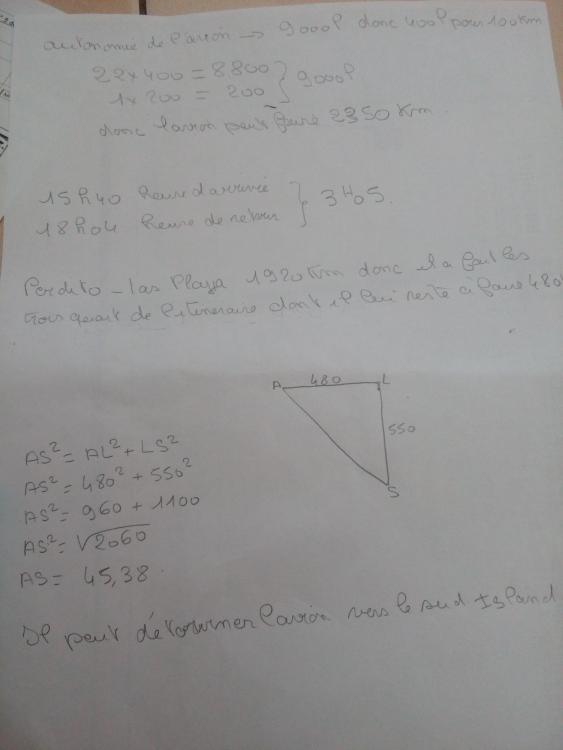 autonomie de l'avion → 9000l donc 400l pour 100 Km
22 x 400 = 8800 } 9000l
1 x 200 = 200
donc l'avion peut faire 2350 Km.
15h40 heure d'arrivée } 3H05.
18h04 heure de retour
Perdito - las Playa 1920 Km donc il a fait les
trois quart de l'itineraire dont il lui reste à faire 480
A 480 L
550
S
AS² = AL² + LS²
AS² = 480² + 550²
AS² = 960 + 1100
AS² = √2060
AS = 45,38.
Il peut détourner l'avion vers le sud Island